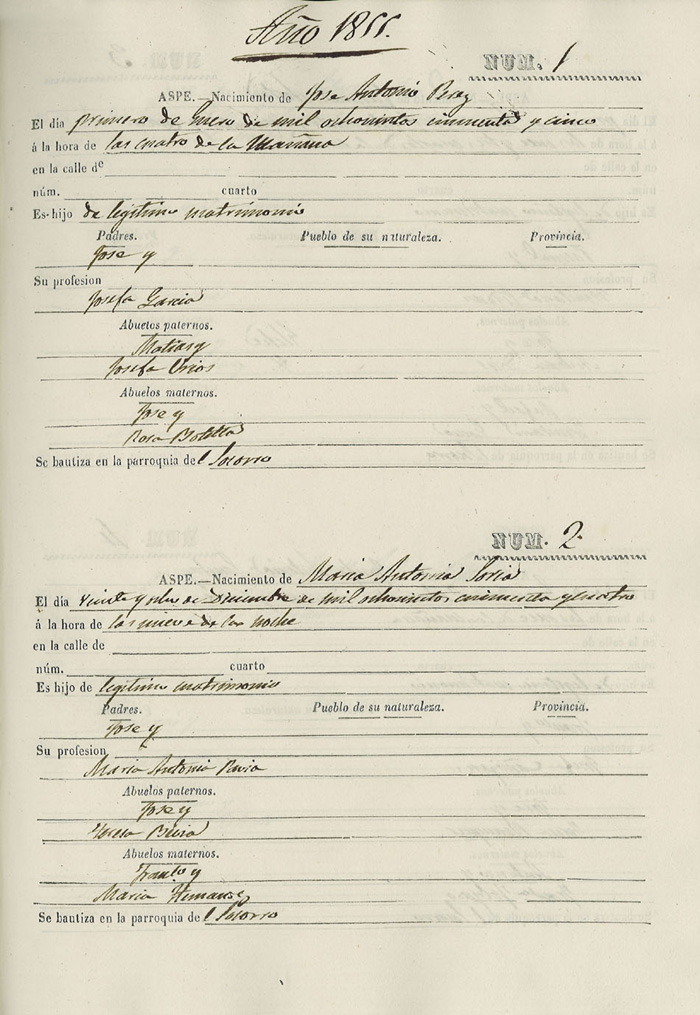 Año 1855.
NUM. 1
ASPE.—Nacimiento de Jose Antonio
El dia primero de Enero de mil ochocientos cincuenta y cinco
á la hora de las cuatro de la Mañana
en la calle de
núm. cuarto
Es hijo de legitimo matrimonio
Padres. Pueblo de su naturaleza. Provincia.
Jose y
Su profesion
Josefa Garcia
Abuelos paternos.
Matias y
Josefa Urios
Abuelos maternos.
Jose y
Rosa
Se bautiza en la parroquia del Socorro
NUM. 2.
ASPE.—Nacimiento de Maria Antonia Soria
El dia veinte y ocho de Diciembre de mil ochocientos cincuenta y cuatro
á la hora de las nueve de la noche
en la calle de
núm. cuarto
Es hijo de legitimo matrimonio
Padres. Pueblo de su naturaleza. Provincia.
Jose y
Su profesion
Maria Antonia
Abuelos paternos.
Jose y
Teresa
Abuelos maternos.
y
Maria
Se bautiza en la parroquia del Socorro